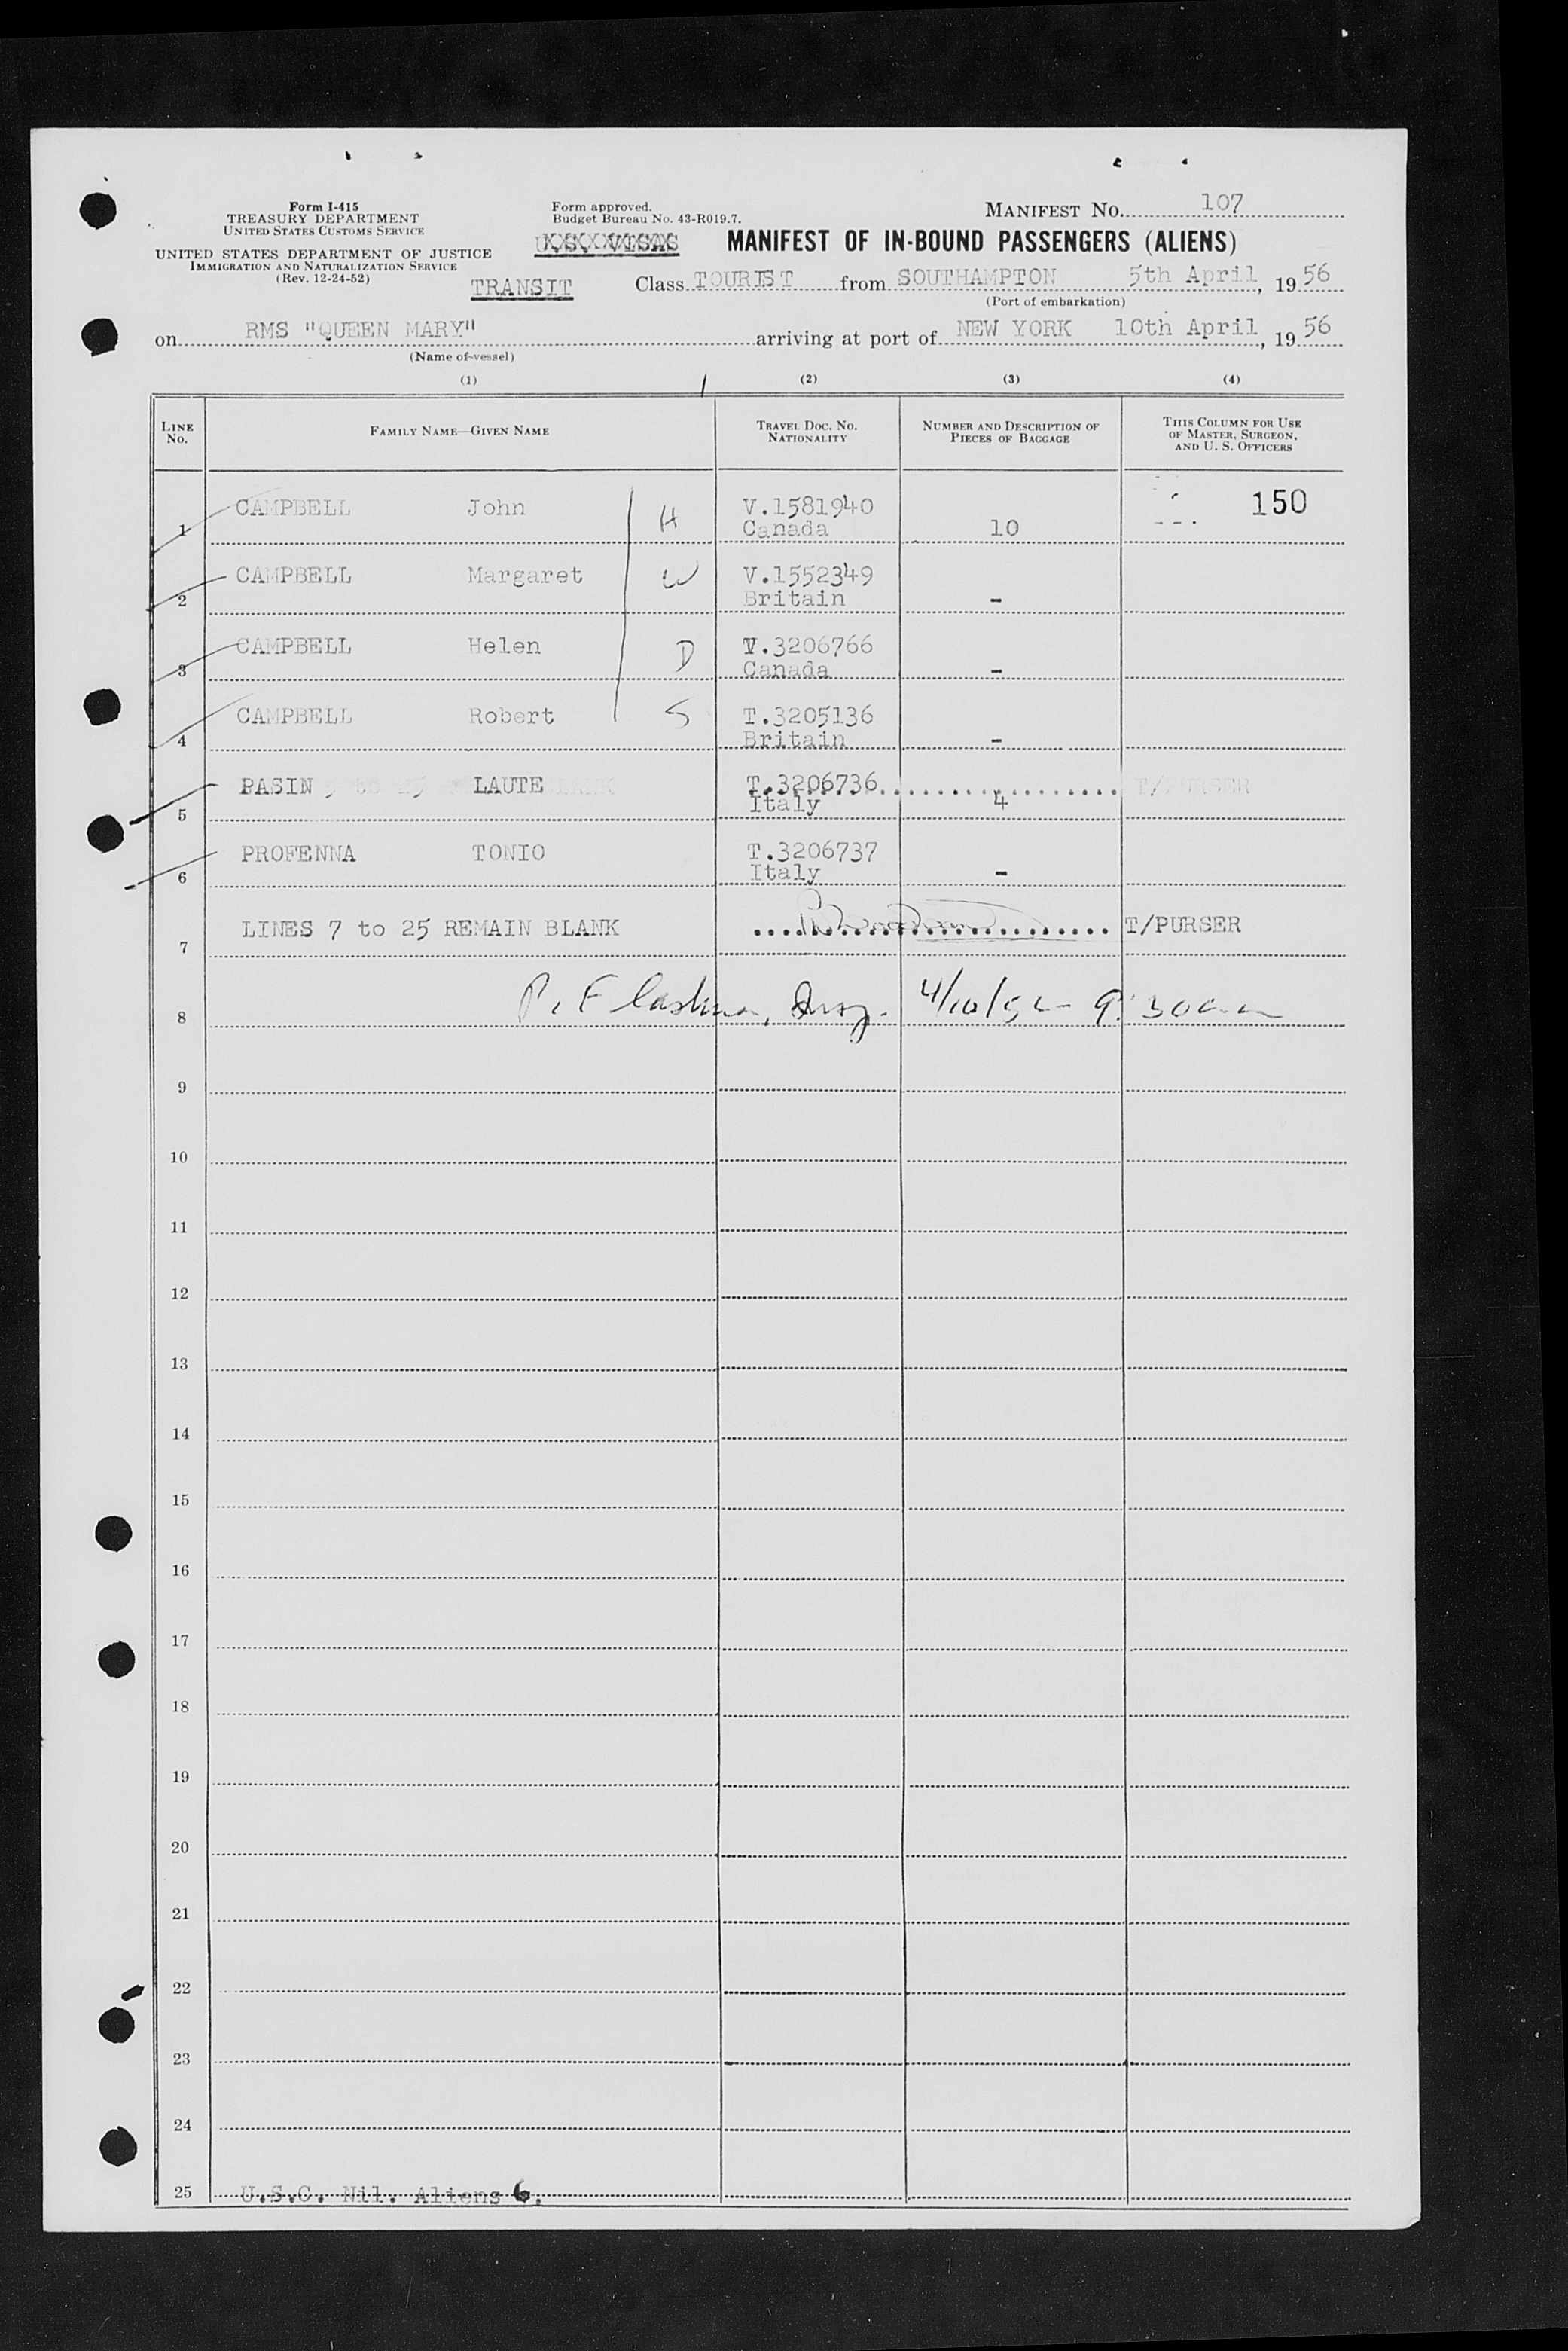 Form I-415
TREASURY DEPARTMENT
UNITED STATES CUSTOMS SERVICE
UNITED STATES DEPARTMENT OF JUSTICE
IMMIGRATION AND NATURALIZATION SERVICE
(Rev. 12-24-52)
Form approved.
Budget Bureau No. 43-R019.7.
MANIFEST No. 107
MANIFEST OF IN-BOUND PASSENGERS (ALIENS)
TRANSIT Class TOURIST from SOUTHAMPTON 5th April, 1956
(Port of embarkation)
on RMS "QUEEN MARY" arriving at port of NEW YORK 10th April, 1956
(Name of vessel)
(1) (2) (3) (4)
LINE No. FAMILY NAME—GIVEN NAME TRAVEL DOC. No. NATIONALITY NUMBER AND DESCRIPTION OF PIECES OF BAGGAGE THIS COLUMN FOR USE OF MASTER, SURGEON, AND U. S. OFFICERS
1 CAMPBELL John H V.1581940 Canada 10 150
2 CAMPBELL Margaret W V.1552349 Britain -
3 CAMPBELL Helen D V.3206766 Canada -
4 CAMPBELL Robert S T.3205136 Britain -
5 PASIN LAUTE T.3206736 Italy 4 T/PURSER
6 PROFENNA TONIO T.3206737 Italy -
7 LINES 7 to 25 REMAIN BLANK T/PURSER
8 4/10/56 9:30am
9
10
11
12
13
14
15
16
17
18
19
20
21
22
23
24
25 U.S.C. Nil. Aliens 6.